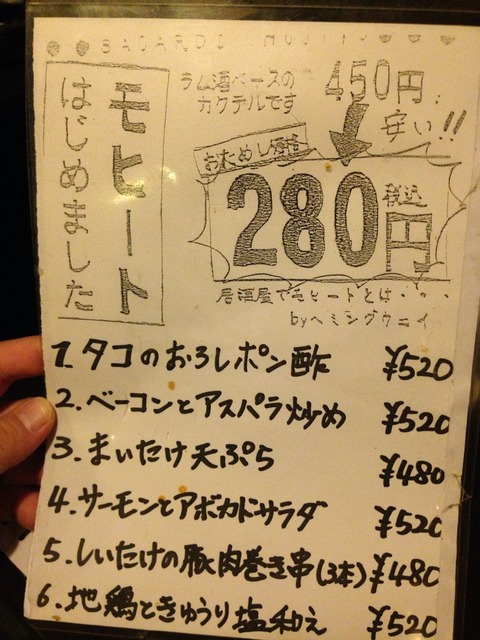 BACARDI MOJITO
モヒート
はじめました
ラム酒ベースの
カクテルです
450円
安い!!
おためし価格
280円
税込
居酒屋でモヒートとは・・・
byヘミングウェイ
1.タコのおろしポン酢 ¥520
2.ベーコンとアスパラ炒め ¥520
3.まいたけ天ぷら ¥480
4.サーモンとアボカドサラダ ¥520
5.しいたけの豚肉巻き串(3本) ¥480
6.地鶏ときゅうり塩和え ¥520